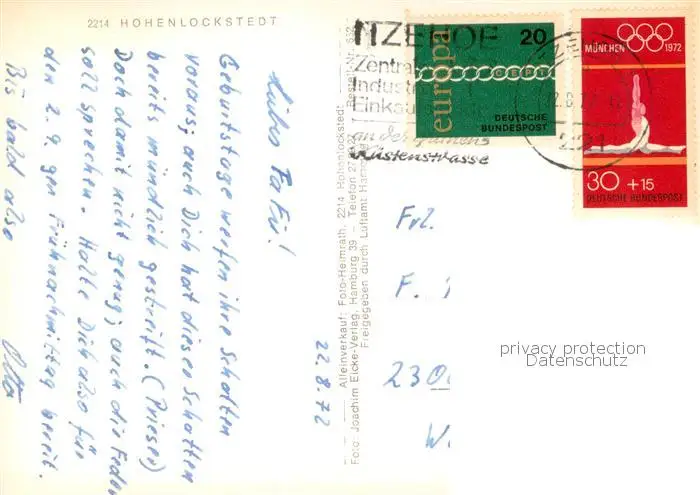 2214 HOHENLOCKSTEDT
Liebes
Geburtstage werfen ihre Schatten
voraus; auch Dich hat dieser Schatten
bereits mündlich gestreift. (Prieser)
Doch damit nicht genug; auch die Feder
soll sprechen. Halte Dich also für
den 2.9. gen Frühnachmittag bereit.
Bis bald also
Otto
22.8.72
Alleinverkauf: Foto-Heimrath, 2214 Hohenlockstedt
Foto: Joachim Eicke-Verlag, Hamburg 39 – Telefon Bestell-Nr.
Freigegeben durch Luftamt
ITZEHOE
Zentral
Industr
Einkau
an der grünen
Küstenstrasse
europa
20
CEPT
DEUTSCHE
BUNDESPOST
MÜNCHEN 1972
30 +15
DEUTSCHE BUNDESPOST
Frl.
F.
230
W.
privacy protection
Datenschutz